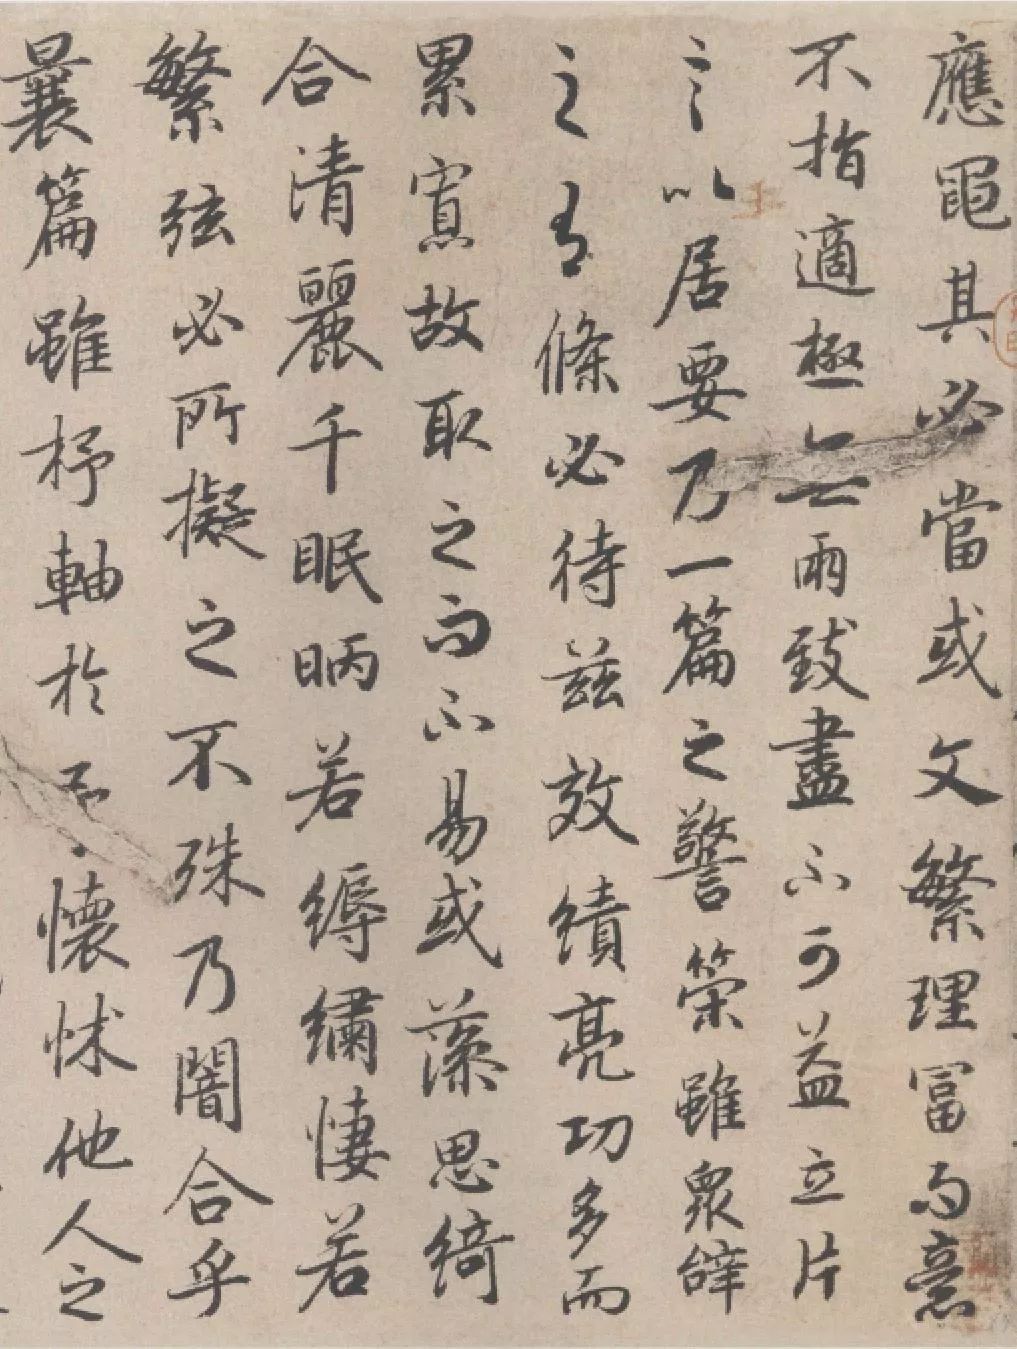 應黽其必當或文繁理富而意
不指適極無兩致盡不可益立片
言以居要乃一篇之警策雖眾辭
之有條必待茲效績亮功多而
累寡故取之而不易或藻思綺
合清麗千眠眪若縟繡悽若
繁弦必所擬之不殊乃闇合乎
曩篇雖杼軸於予懷怵他人之